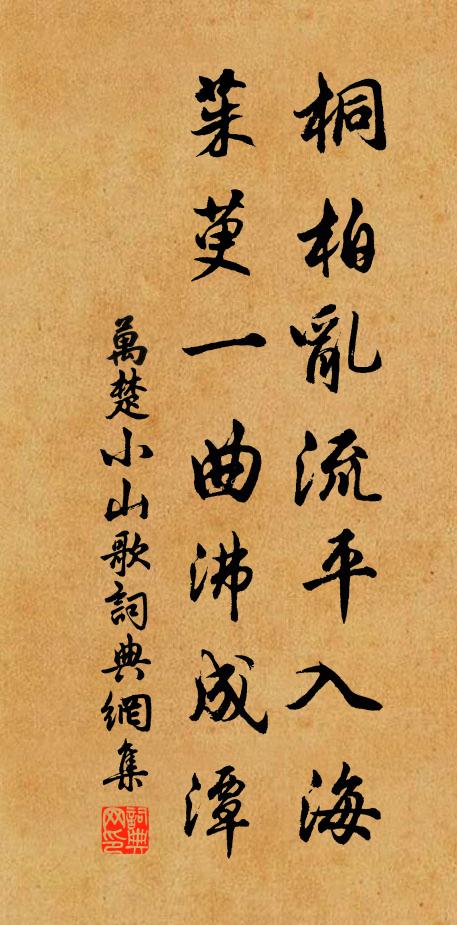 桐柏亂流平入海
茱萸一曲沸成潭
萬楚小山歌詞典網集
詞典網印